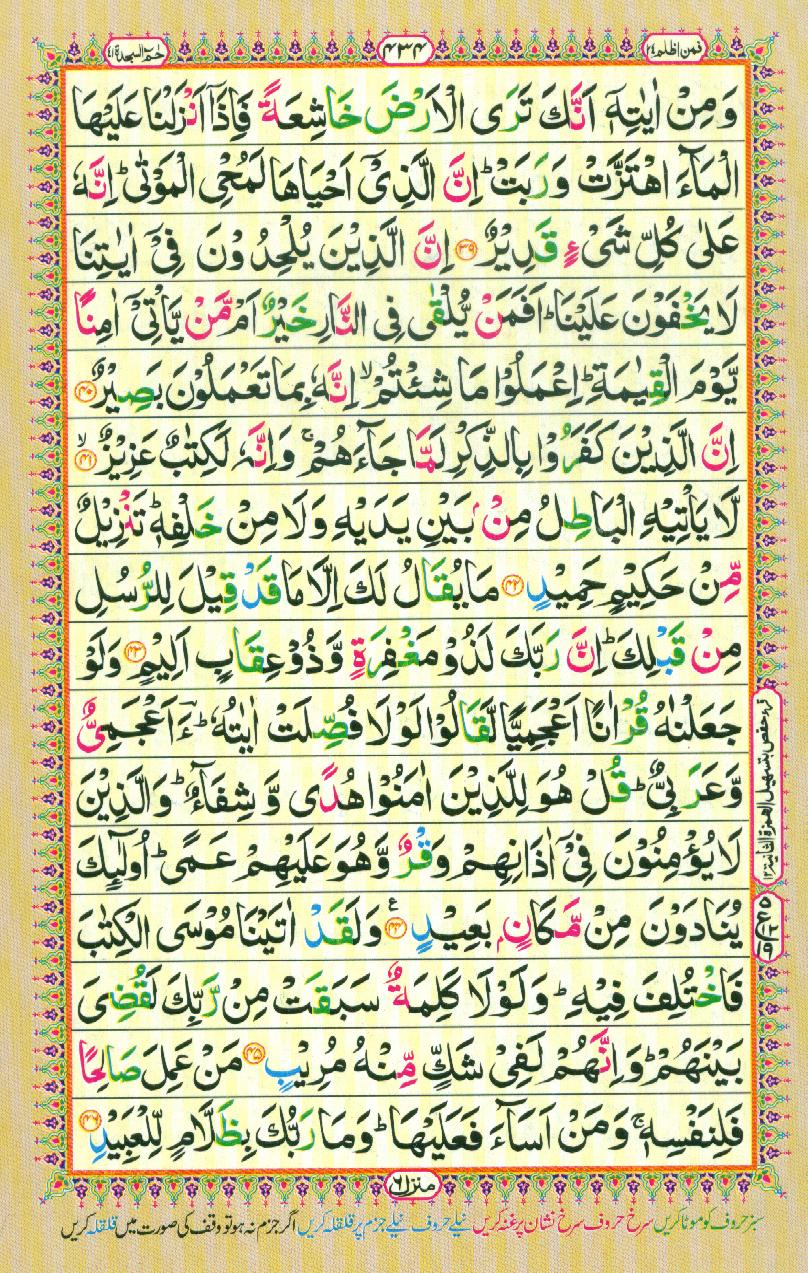 فمن اظلم ۲۴
۴۳۴
حٰمٓ السجدة ۴۱
وَمِنْ اٰيٰتِهٖۤ اَنَّكَ تَرَى الْاَرْضَ خَاشِعَةً فَاِذَاۤ اَنْزَلْنَا عَلَيْهَا
الْمَآءَ اهْتَزَّتْ وَرَبَتْ ؕ اِنَّ الَّذِيْۤ اَحْيَاهَا لَمُحْيِ الْمَوْتٰى ؕ اِنَّهٗ
عَلٰى كُلِّ شَيْءٍ قَدِيْرٌ ۝۳۹ اِنَّ الَّذِيْنَ يُلْحِدُوْنَ فِيْۤ اٰيٰتِنَا
لَا يَخْفَوْنَ عَلَيْنَا ؕ اَفَمَنْ يُّلْقٰى فِي النَّارِ خَيْرٌ اَمْ مَّنْ يَّاْتِيْۤ اٰمِنًا
يَّوْمَ الْقِيٰمَةِ ؕ اِعْمَلُوْا مَا شِئْتُمْ ۙ اِنَّهٗ بِمَا تَعْمَلُوْنَ بَصِيْرٌ ۝۴۰
اِنَّ الَّذِيْنَ كَفَرُوْا بِالذِّكْرِ لَمَّا جَآءَهُمْ ۚ وَاِنَّهٗ لَكِتٰبٌ عَزِيْزٌ ۝۴۱ۙ
لَّا يَاْتِيْهِ الْبَاطِلُ مِنْۢ بَيْنِ يَدَيْهِ وَلَا مِنْ خَلْفِهٖ ؕ تَنْزِيْلٌ
مِّنْ حَكِيْمٍ حَمِيْدٍ ۝۴۲ مَا يُقَالُ لَكَ اِلَّا مَا قَدْ قِيْلَ لِلرُّسُلِ
مِنْ قَبْلِكَ ؕ اِنَّ رَبَّكَ لَذُوْ مَغْفِرَةٍ وَّذُوْ عِقَابٍ اَلِيْمٍ ۝۴۳ وَلَوْ
جَعَلْنٰهُ قُرْاٰنًا اَعْجَمِيًّا لَّقَالُوْا لَوْلَا فُصِّلَتْ اٰيٰتُهٗ ؕ ءَاَعْجَمِيٌّ
وَّعَرَبِيٌّ ؕ قُلْ هُوَ لِلَّذِيْنَ اٰمَنُوْا هُدًى وَّشِفَآءٌ ؕ وَالَّذِيْنَ
لَا يُؤْمِنُوْنَ فِيْۤ اٰذَانِهِمْ وَقْرٌ وَّهُوَ عَلَيْهِمْ عَمًى ؕ اُولٰٓئِكَ
يُنَادَوْنَ مِنْ مَّكَانٍۢ بَعِيْدٍ ۝۴۴ع وَلَقَدْ اٰتَيْنَا مُوْسَى الْكِتٰبَ
فَاخْتُلِفَ فِيْهِ ؕ وَلَوْلَا كَلِمَةٌ سَبَقَتْ مِنْ رَّبِّكَ لَقُضِيَ
بَيْنَهُمْ ؕ وَاِنَّهُمْ لَفِيْ شَكٍّ مِّنْهُ مُرِيْبٍ ۝۴۵ مَنْ عَمِلَ صَالِحًا
فَلِنَفْسِهٖ ۚ وَمَنْ اَسَآءَ فَعَلَيْهَا ؕ وَمَا رَبُّكَ بِظَلَّامٍ لِّلْعَبِيْدِ ۝۴۶
بتسهيل الهمزة الثانية ۱۲
منزل ۶
سبز حروف کو موٹا کریں سرخ حروف سرخ نشان پر غنہ کریں نیلے حروف نیلے جزم پر قلقلہ کریں اگر جزم نہ ہو تو وقف کی صورت میں قلقلہ کریں